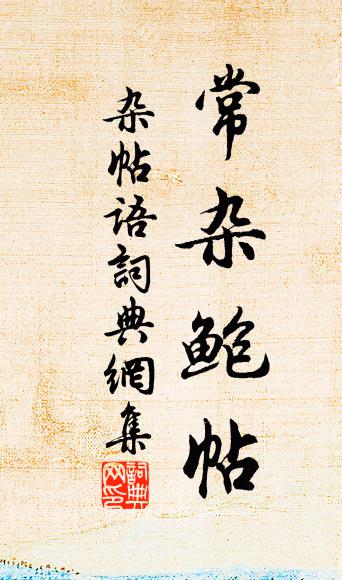 常杂鲍帖
杂帖语詞典網集
詞典網印